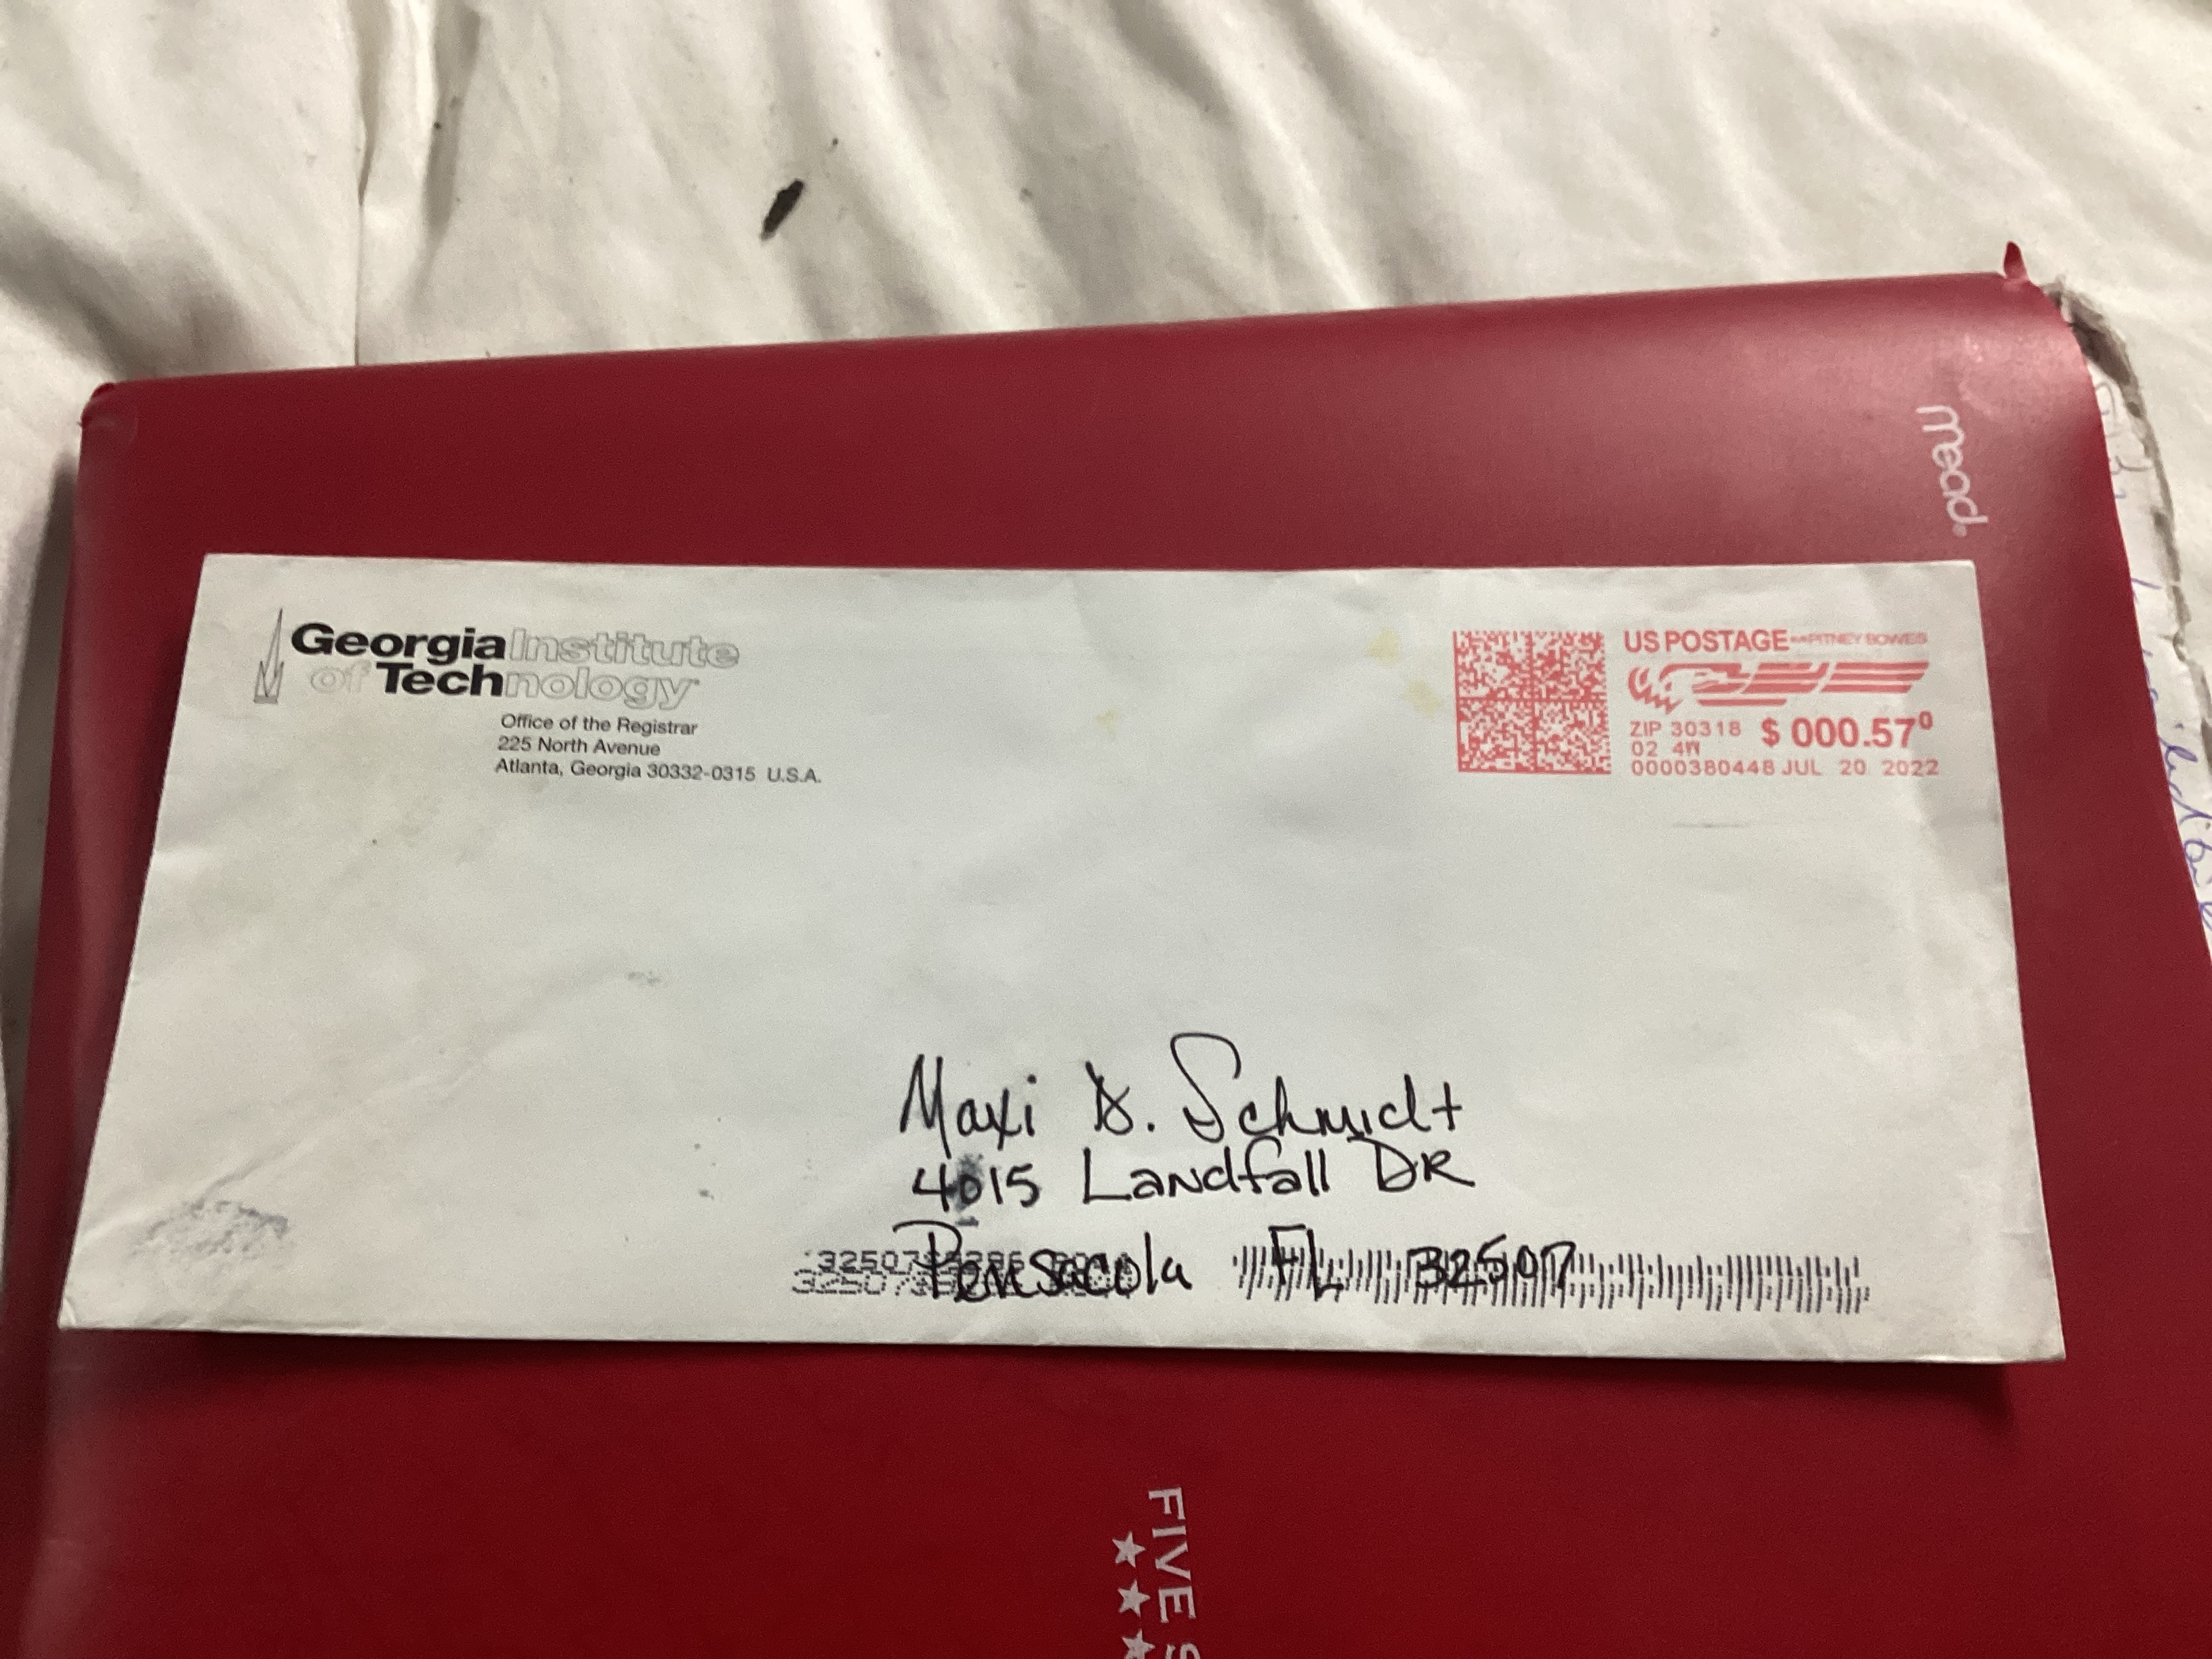 mead
Georgia Institute
of Technology
Office of the Registrar
225 North Avenue
Atlanta, Georgia 30332-0315 U.S.A.
US POSTAGE PITNEY BOWES
ZIP 30318 $ 000.57⁰
02 4W
0000380448 JUL 20 2022
Maxi D. Schmidt
4015 Landfall DR
Pensacola FL 32507
FIVE S